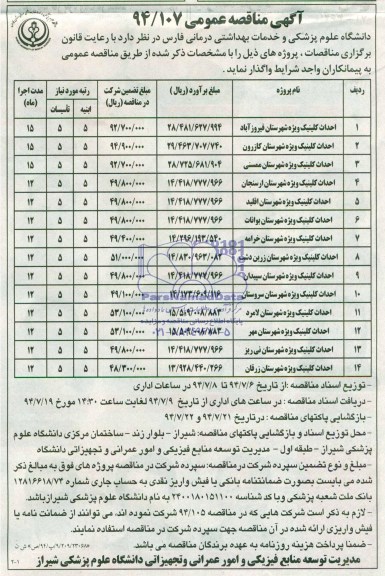 آگهی مناقصه عمومی ۹۴/۱۰۷
دانشگاه علوم پزشکی و خدمات بهداشتی درمانی فارس در نظر دارد با رعایت قانون
برگزاری مناقصات ، پروژه های ذیل را با مشخصات ذکر شده از طریق مناقصه عمومی
به پیمانکاران واجد شرایط واگذار نماید .
ردیف نام پروژه مبلغ برآورد (ریال) مبلغ تضمین شرکت در مناقصه (ریال) رتبه مورد نیاز ابنیه تأسیسات مدت اجرا (ماه)
۱ احداث کلینیک ویژه شهرستان فیروزآباد ۲۸/۴۸۱/۶۲۷/۹۹۴ ۹۲/۷۰۰/۰۰۰ ۵ ۵ ۱۵
۲ احداث کلینیک ویژه شهرستان کازرون ۲۹/۴۶۳/۷۰۷/۷۴۰ ۹۴/۹۰۰/۰۰۰ ۵ ۵ ۱۵
۳ احداث کلینیک ویژه شهرستان ممسنی ۲۸/۷۲۵/۶۸۱/۹۰۴ ۹۲/۷۰۰/۰۰۰ ۵ ۵ ۱۵
۴ احداث کلینیک ویژه شهرستان ارسنجان ۱۴/۴۱۸/۷۷۷/۹۶۶ ۴۹/۸۰۰/۰۰۰ ۵ ۵ ۱۲
۵ احداث کلینیک ویژه شهرستان اقلید ۱۴/۴۱۸/۷۷۷/۹۶۶ ۴۹/۸۰۰/۰۰۰ ۵ ۵ ۱۲
۶ احداث کلینیک ویژه شهرستان بوانات ۱۴/۴۱۸/۷۷۷/۹۶۶ ۴۹/۸۰۰/۰۰۰ ۵ ۵ ۱۲
۷ احداث کلینیک ویژه شهرستان خرامه ۱۴/۲۹۶/۱۹۳/۵۴۰ ۴۹/۴۰۰/۰۰۰ ۵ ۵ ۱۲
۸ احداث کلینیک ویژه شهرستان زرین دشت ۱۴/۸۳۰/۹۶۳/۰۸۲ ۵۱/۰۰۰/۰۰۰ ۵ ۵ ۱۲
۹ احداث کلینیک ویژه شهرستان سپیدان ۱۴/۴۱۸/۷۷۷/۹۶۶ ۴۹/۸۰۰/۰۰۰ ۵ ۵ ۱۲
۱۰ احداث کلینیک ویژه شهرستان سروستان ۴۹/۱۰۰/۰۰۰ ۵ ۵ ۱۲
۱۱ احداث کلینیک ویژه شهرستان لامرد ۱۵/۵۰۹/۰۰۸/۸۸۳ ۵۳/۱۰۰/۰۰۰ ۵ ۵ ۱۲
۱۲ احداث کلینیک ویژه شهرستان مهر ۱۵/۵۰۹/۰۰۸/۸۸۳ ۵۳/۱۰۰/۰۰۰ ۵ ۵ ۱۲
۱۳ احداث کلینیک ویژه شهرستان نی ریز ۱۴/۴۱۸/۷۷۷/۹۶۶ ۴۹/۸۰۰/۰۰۰ ۵ ۵ ۱۲
۱۴ احداث کلینیک ویژه شهرستان زرقان ۱۳/۹۲۸/۴۴۰/۲۶۶ ۴۸/۳۰۰/۰۰۰ ۵ ۵ ۱۲
- توزیع اسناد مناقصه :از تاریخ ۹۴/۷/۶ تا ۹۴/۷/۸ در ساعات اداری
- دریافت اسناد مناقصه : در ساعت های اداری از تاریخ ۹۴/۷/۹ لغایت ساعت ۱۴:۳۰ مورخ ۹۴/۷/۱۹
- بازگشایی پاکتهای مناقصه : درتاریخ ۹۴/۷/۲۱ و ۹۴/۷/۲۲
- محل توزیع اسناد و بازگشایی پاکتهای مناقصه: شیراز - بلوار زند - ساختمان مرکزی دانشگاه علوم
پزشکی شیراز - طبقه اول - مدیریت توسعه منابع فیزیکی و امور عمرانی و تجهیزاتی دانشگاه
- مبلغ و نوع تضمین سپرده شرکت در مناقصه: سپرده شرکت در مناقصه پروژه های فوق به مبالغ ذکر
شده می بایست بصورت ضمانتنامه بانکی یا فیش واریز نقدی به حساب جاری شماره ۱۲۸۱۶۶۱۸/۷۳
بانک ملت شعبه پزشکی و با کد شناسه ۲۳۰۰۱۸۰۱۵۱۱۰۰ به نام دانشگاه علوم پزشکی شیراز باشد.
- لازم به ذکر است شرکت هایی که در مناقصه ۹۴/۱۰۵ شرکت نموده اند، می توانند از ضمانت نامه یا
فیش واریزی ارائه شده در آن مناقصه جهت سپرده شرکت در مناقصه استفاده نمایند.
- ضمنا پرداخت هزینه روزنامه به عهده برندگان مناقصه می باشد.
مدیریت توسعه منابع فیزیکی و امور عمرانی وتجهیزاتی دانشگاه علوم پزشکی شیراز
ParsNamadData